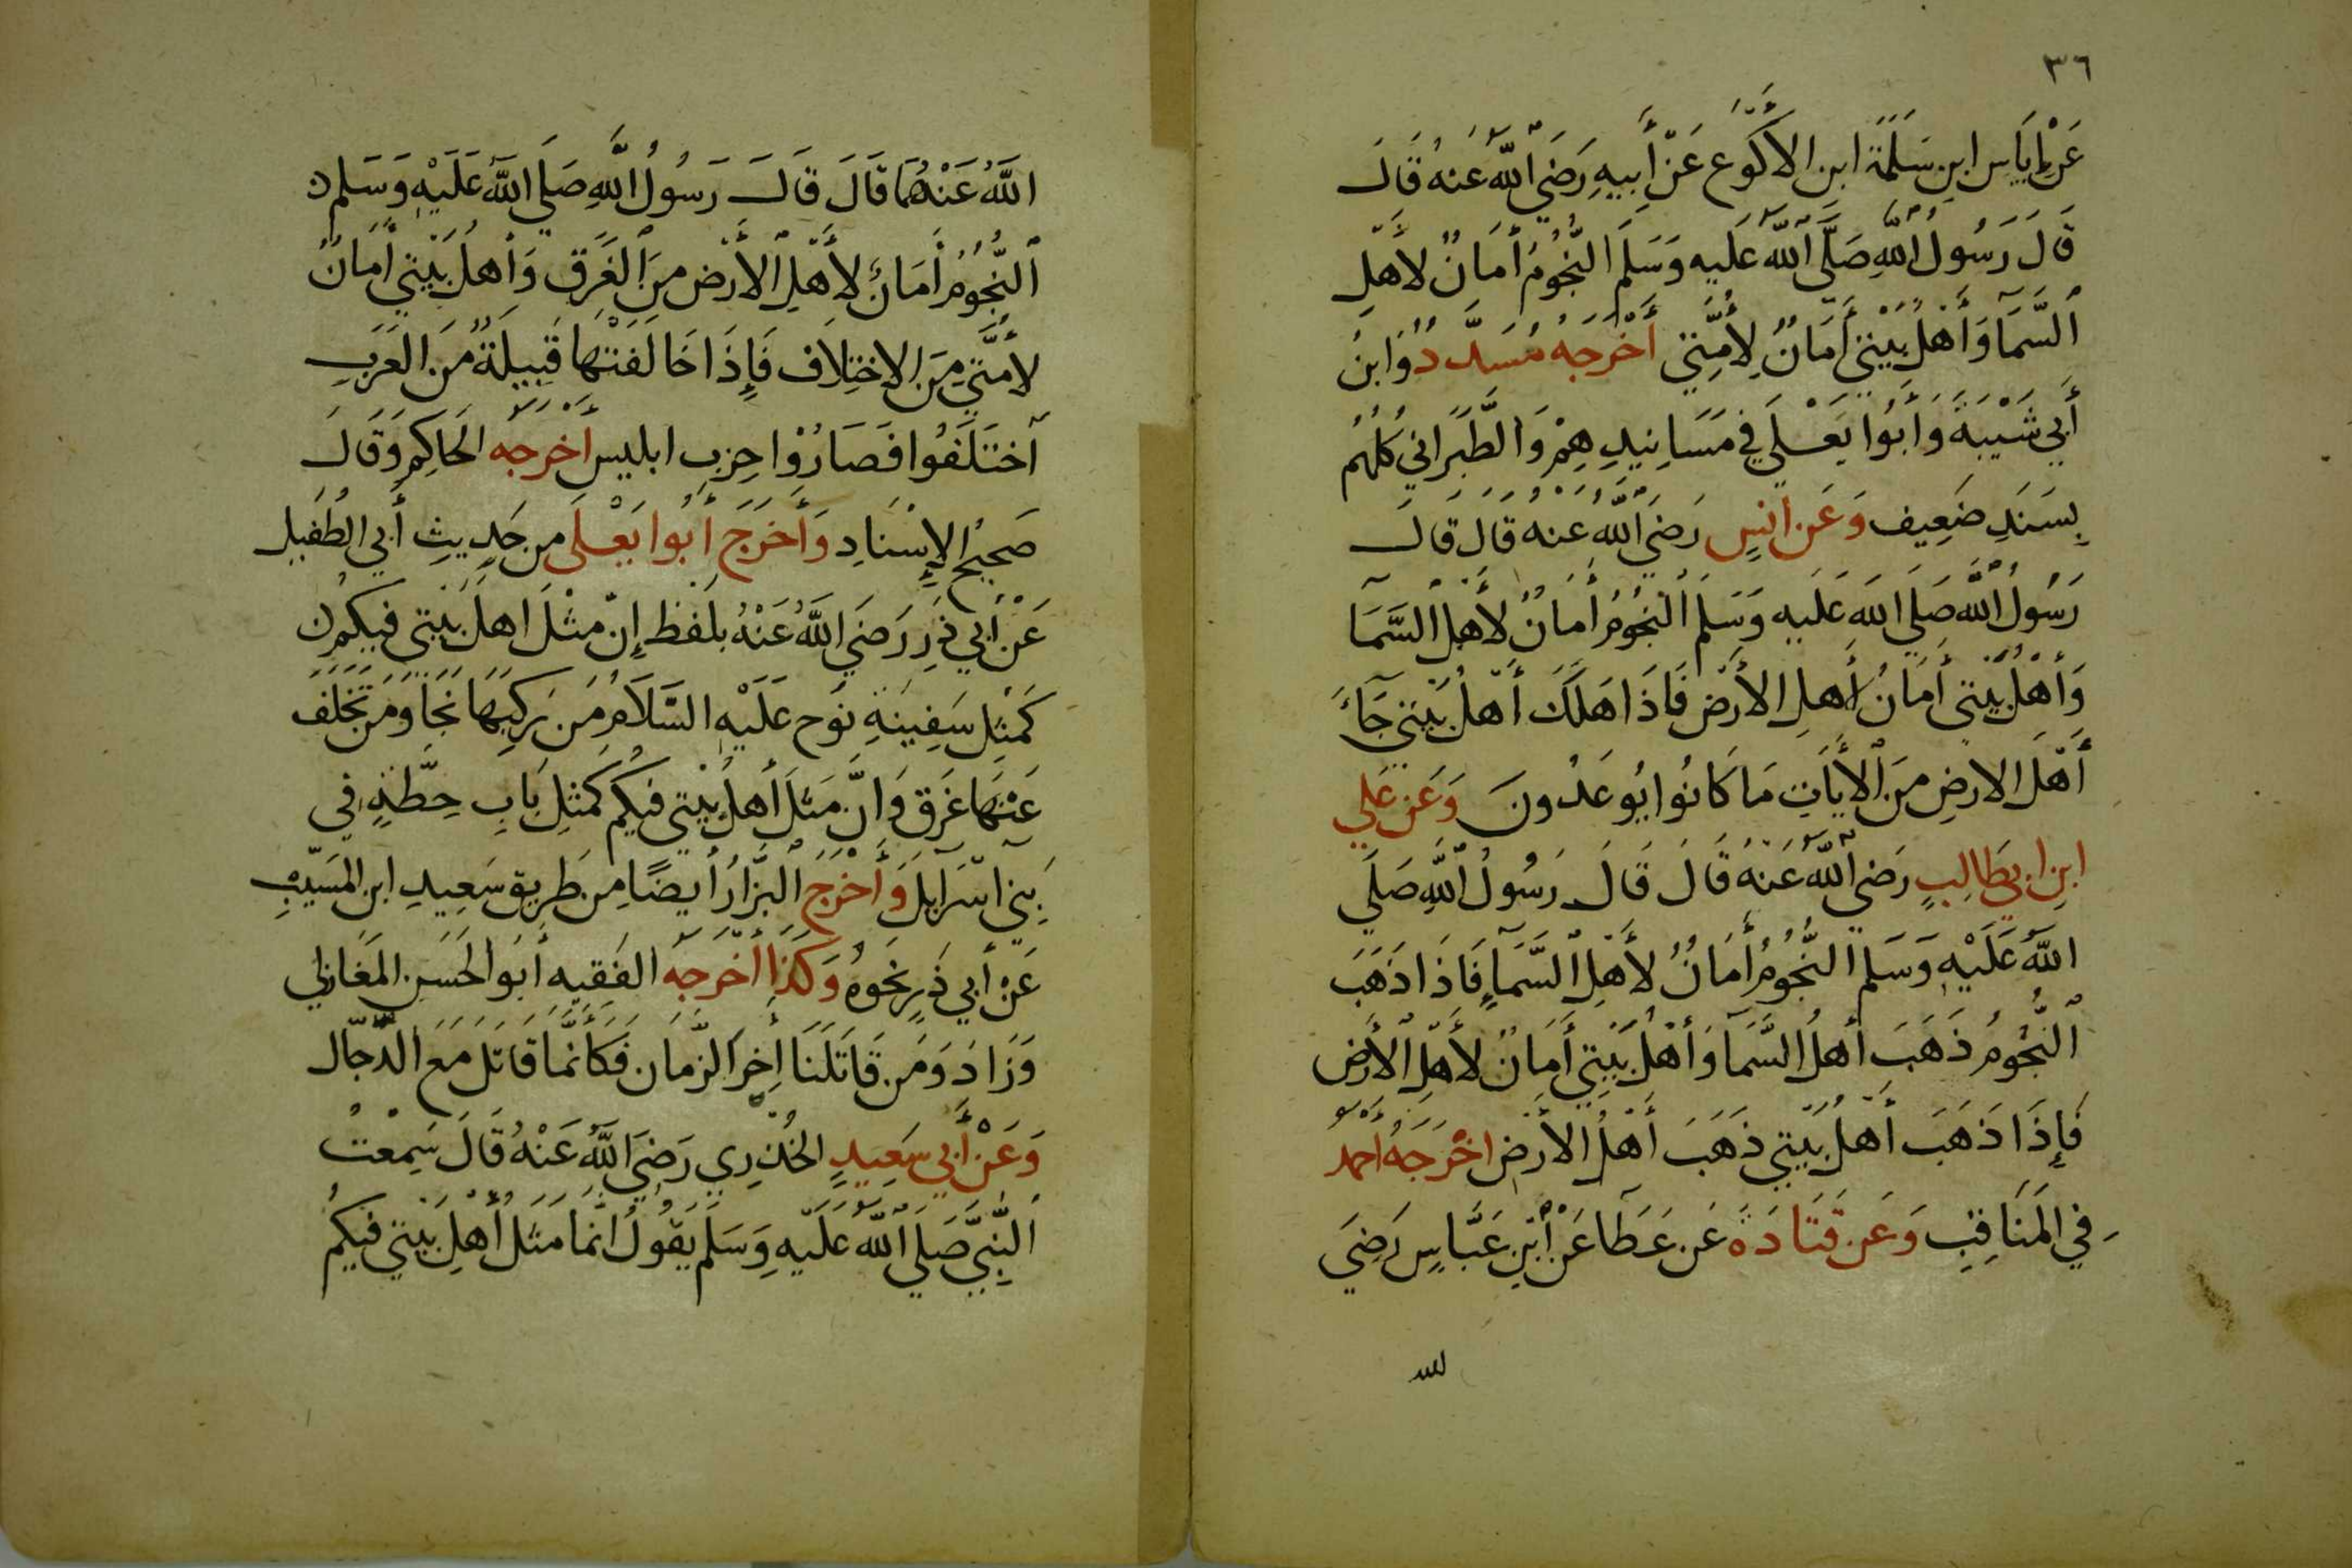 ٣٦
عَنْ إِيَاسِ ابنِ سَلَمَةَ ابن الأَكْوَع عَنْ أَبِيهِ رَضِيَ اللَّهُ عَنهُ قَالَ
قَالَ رَسُولُ اللَّهِ صَلَّى اللَّهُ عَلَيه وَسَلَمَ النُّجُومُ أَمَانٌ لأَهلِ
السَّمَا وَأَهْلُ بَيْتِي أَمَانٌ لِأُمَّتِي أَخْرَجَهُ مُسَدَّدٌ وَابنُ
أَبِي شَيْبَةَ وَأَبُوا يَعْلَي فِي مَسَانِيدِهِمْ وَالطَّبَرَانِي كُلُهُم
بِسَنَدِ ضَعِيف وَعَن انسٍ رَضِيَ اللَّهُ عَنهُ قَالَ قَالَ
رَسُولُ اللَّه صَلَي اللَّه عَلَيه وَسَلَمَ النُّجُومُ أَمَانٌ لأَهلِ السَّمَا
وَأَهْلُ بَيْتي أَمَانُ أَهلِ الأَرْضِ فَاذَا هَلَكَ أَهْلُ بَيْتِي جَآءَ
أَهْلَ الارضِ مِنَ الأَيَاتِ مَا كَانُوا يُوعَدُونَ وَعَن عَلِي
ابنِ ابي طَالِبٍ رَضِيَ اللَّهُ عَنهُ قَالَ قَالَ رَسُولُ اللَّهِ صَلَي
اللَّهُ عَلَيْهِ وَسَلَم النُّجُومُ أَمَانٌ لأَهلِ السَّمَآءِ فَاذَا ذَهَبَ
النُّجُومُ ذَهَبَ أَهلُ السَّمَآ وَأَهْلُ بَيْتِي أَمَانٌ لأَهلِ الأَرضِ
فَإِذَا ذَهَبَ أَهْلُ بَيْتِي ذَهَبَ أَهْلُ الأَرضِ اخْرَجَهُ احمدُ
فِي المَنَاقِبِ وَعَن قَتَادَةَ عَن عَطَا عَنْ ابْنِ عَبَّاسٍ رَضِيَ
الله
اللَّهُ عَنْهُمَا قَالَ قَالَ رَسُولُ اللَّهِ صَلَي اللَّهُ عَلَيْهِ وَسَلَم
النُّجُومُ أَمَانٌ لأَهْلِ الأَرْضِ مِنَ الغَرَقِ وَأَهلُ بَيْتِي أَمَانٌ
لأُمَّتِي مِنَ الاخْتِلَاف فَإِذَا خَالَفَتْهَا قَبِيلَةٌ مِنَ العَرَبِ
اختَلَفُوا فَصَارُوْا حِزب ابليس أَخرَجَه الحَاكِم وَقَالَ
صَحِيحُ الإِسْنَادِ وَأَخرَجَ أَبُوا يَعْلَي مِن حَدِيثِ أَبِي الطُفَيلِ
عَنْ أَبِي ذَرٍ رَضِيَ اللَّهُ عَنْهُ بِلَفظ إِنّ مثْلَ اهلِ بَيْتِي فِيكُم
كَمَثَلِ سَفِينَةِ نُوح عَلَيْهِ السَّلَامُ مَن رَكِبَهَا نَجَا وَمَن تَخَلَفَ
عَنْهَا غَرَق وَانَّ مَثَلَ أَهلِ بَيْتي فِيكُم كَمَثَلِ بَابِ حِطَّةٍ فِي
بَنِي اسْرَآيِلَ وَأَخْرَجَ البَزَّارُ أَيضًا مِن طَرِيق سَعِيدِ ابن المُسَيِّبِ
عَنْ أَبِي ذَرٍ نَحوَهُ وَكَذَا أَخْرَجَهُ الفَقِيه أَبُو الحَسَنِ المَغَازِلِي
وَزَادَ وَمَن قَاتَلَنَا أَخِرَ الزَّمَان فَكَأَنَّمَا قَاتَلَ مَعَ الدَّجَال
وَعَنْ أَبِي سَعِيدٍ الخُدْرِي رَضِيَ اللَّهُ عَنْهُ قَالَ سَمِعْتُ
النَّبِيَّ صَلَي اللَّهُ عَلَيْهِ وَسَلَم يَقُولُ انَّمَا مَثَلُ أَهْلِ بَيْتِي فِيكُم